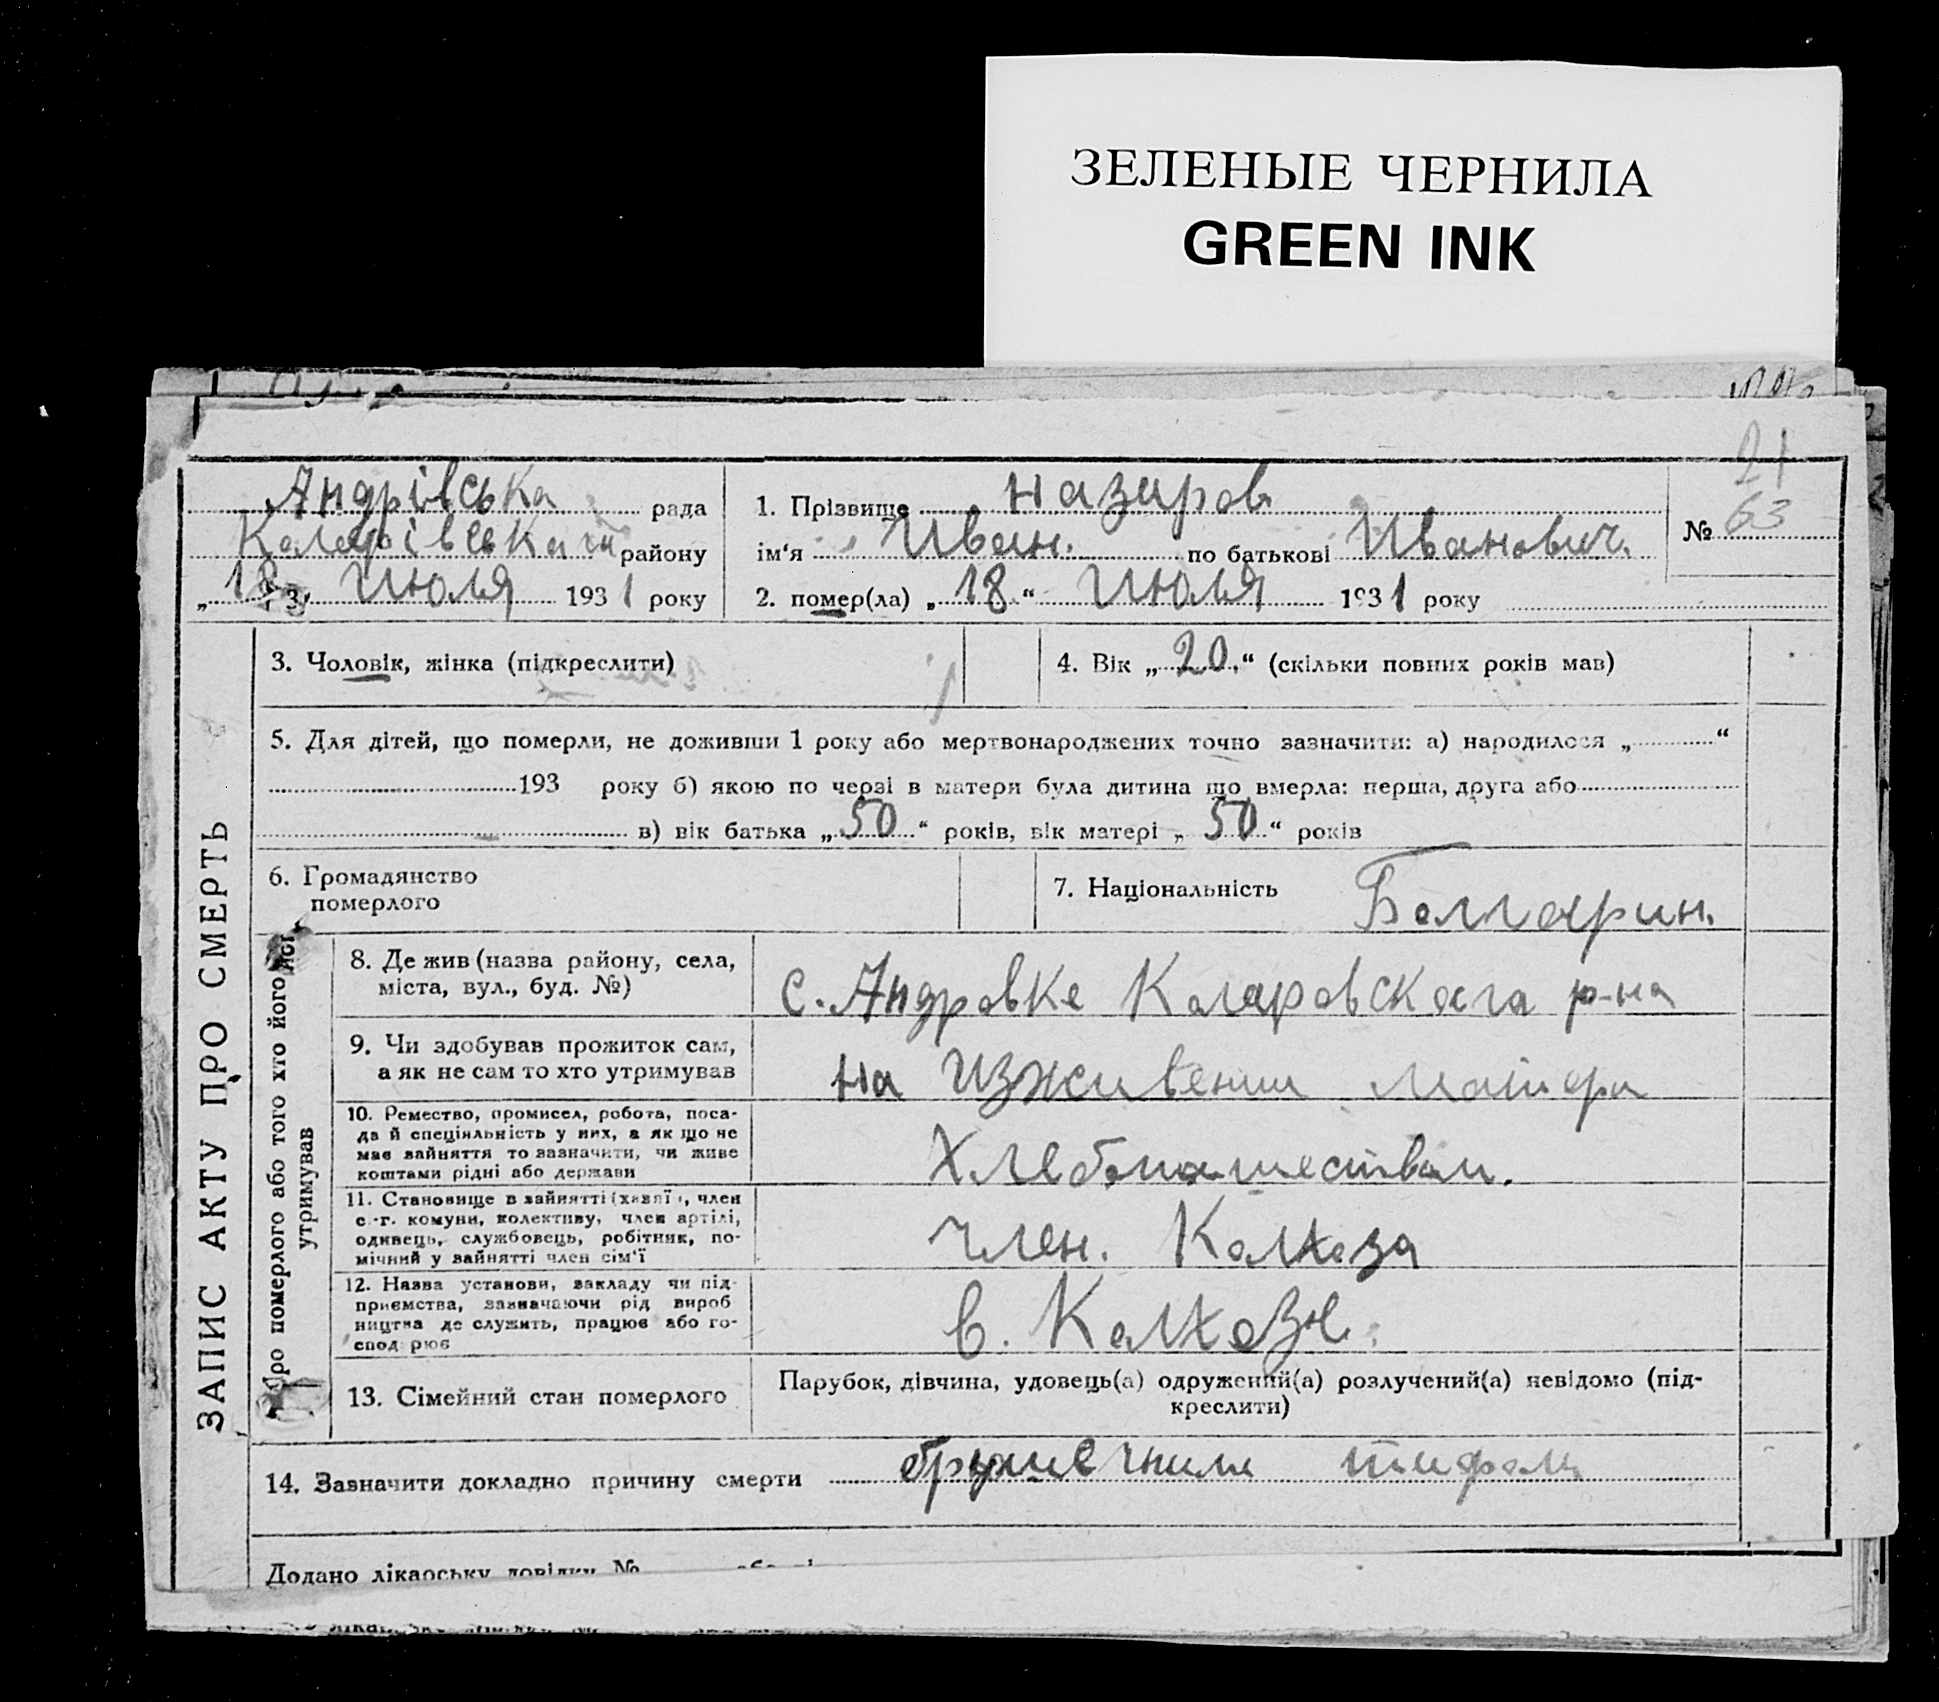 ЗЕЛЕНЫЕ ЧЕРНИЛА
GREEN INK
21
Андрівська рада
Коларівського району
„ 18 " Июля 1931 року
1. Прізвище Назаров
ім‘я Иван. по батькові Иванович.
№ 63
2. помер(ла) „ 18 “ Июля 1931 року
ЗАПИС АКТУ ПРО СМЕРТЬ
3. Чоловік, жінка (підкреслити)
4. Вік „ 20. “ (скільки повних років мав)
5. Для дітей, що померли, не доживши 1 року або мертвонароджених точно зазначити: а) народилося „ “
193 року б) якою по черзі в матери була дитина що вмерла: перша, друга або
в) вік батька „ 50 “ років, вік матері „ 50 “ років
6. Громадянство
померлого
7. Національність Болгарин.
Про померлого або того хто його
утримував
8. Де жив (назва району, села,
міста, вул., буд. №)
с. Андровке Коларовскага р-на
9. Чи здобував прожиток сам,
а як не сам то хто утримував
на Изживении
10. Ремество, промисел, робота, поса-
да й спеціяльність у них, а як що не
має зайняття то зазначити, чи живе
коштами рідні або держави
Хлебопашеством.
11. Становище в зайнятті (хазяї), член
с.-г. комуни, колективу, член артілі,
одинець, службовець, робітник, по-
мічний у зайнятті член сім‘ї
член. Колхоза
12. Назва установи, закладу чи під-
приємства, зазначаючи рід вироб
ництва де служить, працює або го-
сподарює
в. Колхозе.
13. Сімейний стан померлого
Парубок, дівчина, удовець(а) одружений(а) розлучений(а) невідомо (під-
креслити)
14. Зазначити докладно причину смерти тифом
Додано лікарську довідку №